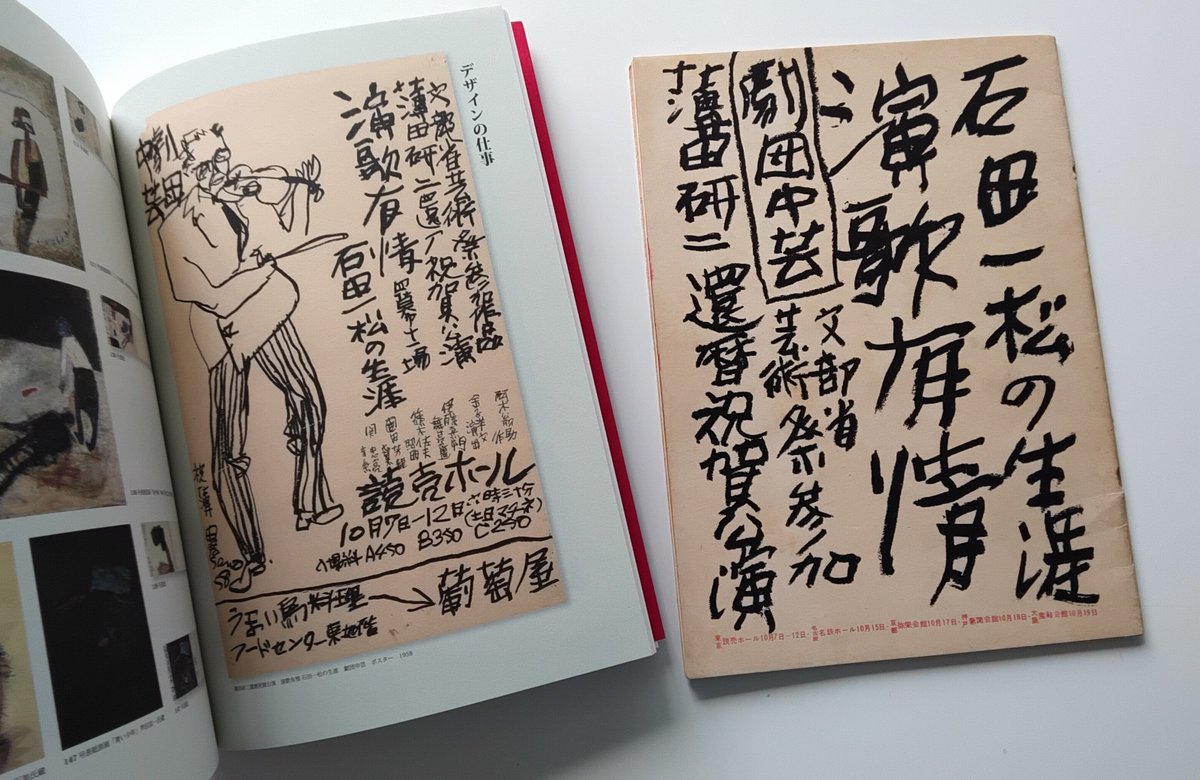 デザインの仕事
文部省芸術祭参加作品
薄田研二還暦祝賀公演
演歌有情 四幕十一場
石田一松の生涯
劇団
中芸
読売ホール
10月7日-12日 六時三十分
(土日マチネ)
入場料 A450 B350 C250
うまい鳥料理→葡萄屋
フードセンター東地階
薄田研二還暦祝賀公演 演歌有情 石田一松の生涯 劇団中芸 ポスター 1958
石田一松の生涯
演歌有情
劇団中芸
文部省
芸術祭参加
薄田研二還暦祝賀公演
東京 読売ホール10月7日-12日・名古屋 名鉄ホール10月15日・京都 弥栄会館10月17日・神戸 新聞会館10月18日・大阪 産経会館10月19日